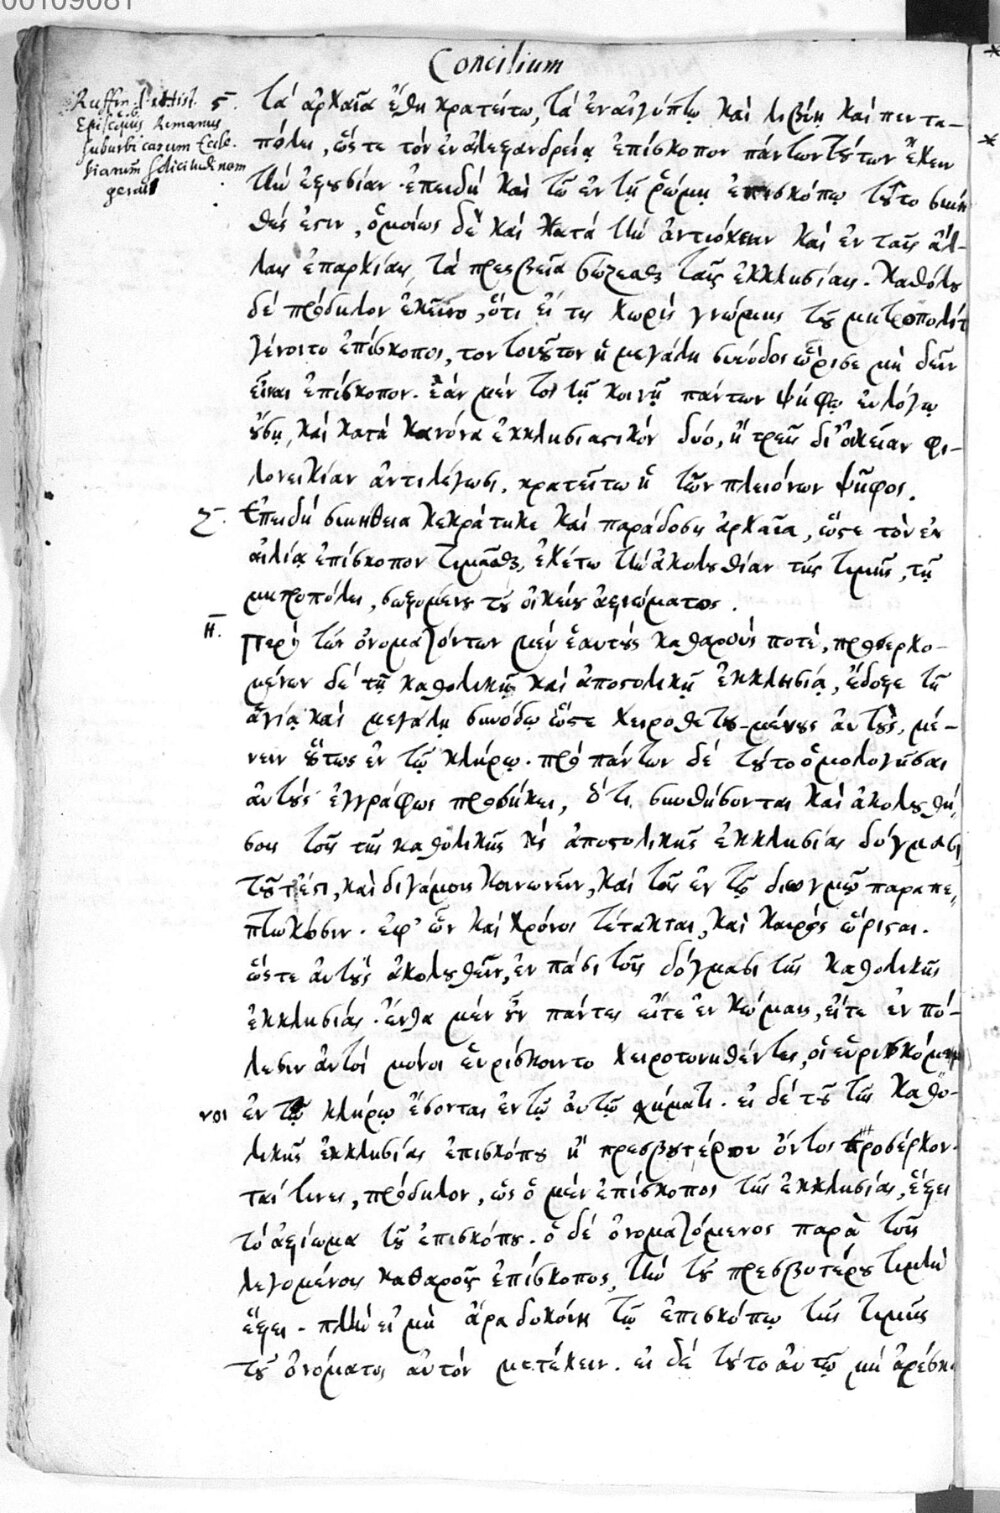 00109081
Concilium
Ruffin. Hist.
Episcopus Romanus
suburbicarum Eccle-
siarum solicitudinem
gerat
ϛ. τὰ ἀρχαῖα ἔθη κρατείτω, τὰ ἐν αἰγύπτῳ καὶ λιβύῃ καὶ πεντα-
πόλει, ὥστε τὸν ἐν ἀλεξανδρείᾳ ἐπίσκοπον πάντων τούτων ἔχειν
τὴν ἐξουσίαν. ἐπειδὴ καὶ τῷ ἐν τῇ ῥώμῃ ἐπισκόπῳ τοῦτο συνη
θές ἐστιν, ὁμοίως δὲ καὶ κατὰ τὴν ἀντιόχειαν καὶ ἐν ταῖς ἄλ-
λαις ἐπαρχίαις, τὰ πρεσβεῖα σώζεσθαι ταῖς ἐκκλησίαις. καθόλου
δὲ πρόδηλον ἐκεῖνο, ὅτι εἴ τις χωρὶς γνώμης τοῦ μητροπολίτ
γένοιτο ἐπίσκοπος, τὸν τοιοῦτον ἡ μεγάλη σύνοδος ὥρισε μὴ δεῖν
εἶναι ἐπίσκοπον. ἐὰν μέν τοι τῇ κοινῇ πάντων ψήφῳ εὐλόγῳ
οὔσῃ, καὶ κατὰ κανόνα ἐκκλησιαστικόν δύο, ἢ τρεῖς δι' οἰκείαν φι-
λονεικίαν ἀντιλέγωσι, κρατείτω ἡ τῶν πλειόνων ψῆφος.
ζ. Ἐπειδὴ συνήθεια κεκράτηκε καὶ παράδοσις ἀρχαῖα, ὥστε τὸν ἐν
αἰλίᾳ ἐπίσκοπον τιμᾶσθαι, ἐχέτω τὴν ἀκολουθίαν τῆς τιμῆς, τῇ
μητροπόλει, σωζομένου τοῦ οἰκείου ἀξιώματος.
η. Περὶ τῶν ὀνομαζόντων μὲν ἑαυτοὺς καθαρούς ποτέ, προσερχο-
μένων δὲ τῇ καθολικῇ καὶ ἀποστολικῇ ἐκκλησίᾳ, ἔδοξε τῇ
ἁγίᾳ καὶ μεγάλῃ συνόδῳ ὥστε χειροθετουμένους αὐτοὺς, μέ-
νειν οὕτως ἐν τῷ κλήρῳ. πρὸ πάντων δὲ τοῦτο ὁμολογῆσαι
αὐτοὺς ἐγγράφως προσήκει, ὅτι συνθήσονται καὶ ἀκολουθή
σουσι τοῖς τῆς καθολικῆς κὲ ἀποστολικῆς ἐκκλησίας δόγμασι
τοῦτέστι, καὶ διγάμοις κοινωνεῖν, καὶ τοῖς ἐν τῷ διωγμῷ παραπε-
πτωκόσιν. ἐφ' ὧν καὶ χρόνοι τέτακται, καὶ καιρὸς ὥρισται.
ὥστε αὐτοὺς ἀκολουθεῖν, ἐν πᾶσι τοῖς δόγμασι τῆς καθολικῆς
ἐκκλησίας. ἔνθα μὲν οὖν πάντες εἴτε ἐν κώμαις, εἴτε ἐν πό-
λεσιν αὐτοὶ μόνοι εὑρίσκοιντο χειροτονηθέντες, οἱ εὑρισκόμε
νοι ἐν τῷ κλήρῳ ἔσονται ἐν τῷ αὐτῷ σχήματι. εἰ δὲ τοῦ τῆς καθο-
λικῆς ἐκκλησίας ἐπισκόπου ἢ πρεσβυτέρου ὄντος προσέρχον-
ταί τινες, πρόδηλον, ὡς ὁ μὲν ἐπίσκοπος τῆς ἐκκλησίας, ἕξει
τὸ ἀξίωμα τοῦ ἐπισκόπου. ὁ δὲ ὀνομαζόμενος παρὰ τοῖς
λεγομένοις καθαροῖς ἐπίσκοπος, τὴν τοῦ πρεσβυτέρου τιμὴν
ἕξει. πλὴν εἰ μὴ ἄρα δοκοίη τῷ ἐπισκόπῳ τῆς τιμῆς
τοῦ ὀνόματος αὐτὸν μετέχειν. εἰ δὲ τοῦτο αὐτῷ μὴ ἀρέσκοι